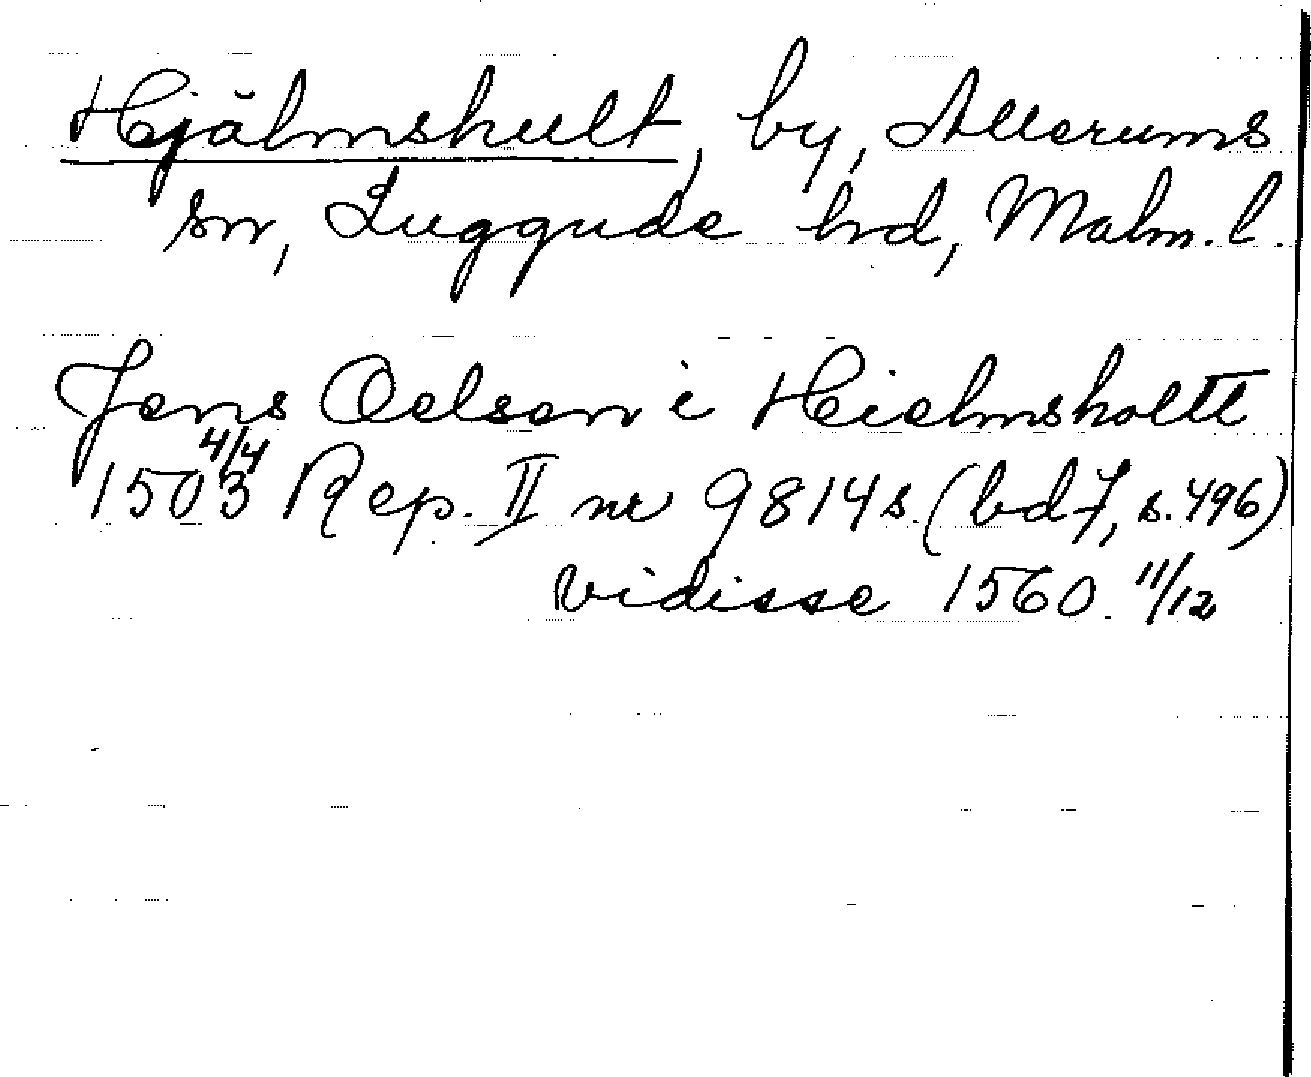 Hjälmshult, by, Allerums
sn, Luggude hd, Malm. l.
Jens Oelsen i Hielmsholtt
1503 4/4 Rep. II nr 9814 s. (bd 7, s. 496)
Vidisse 1560. 11/12